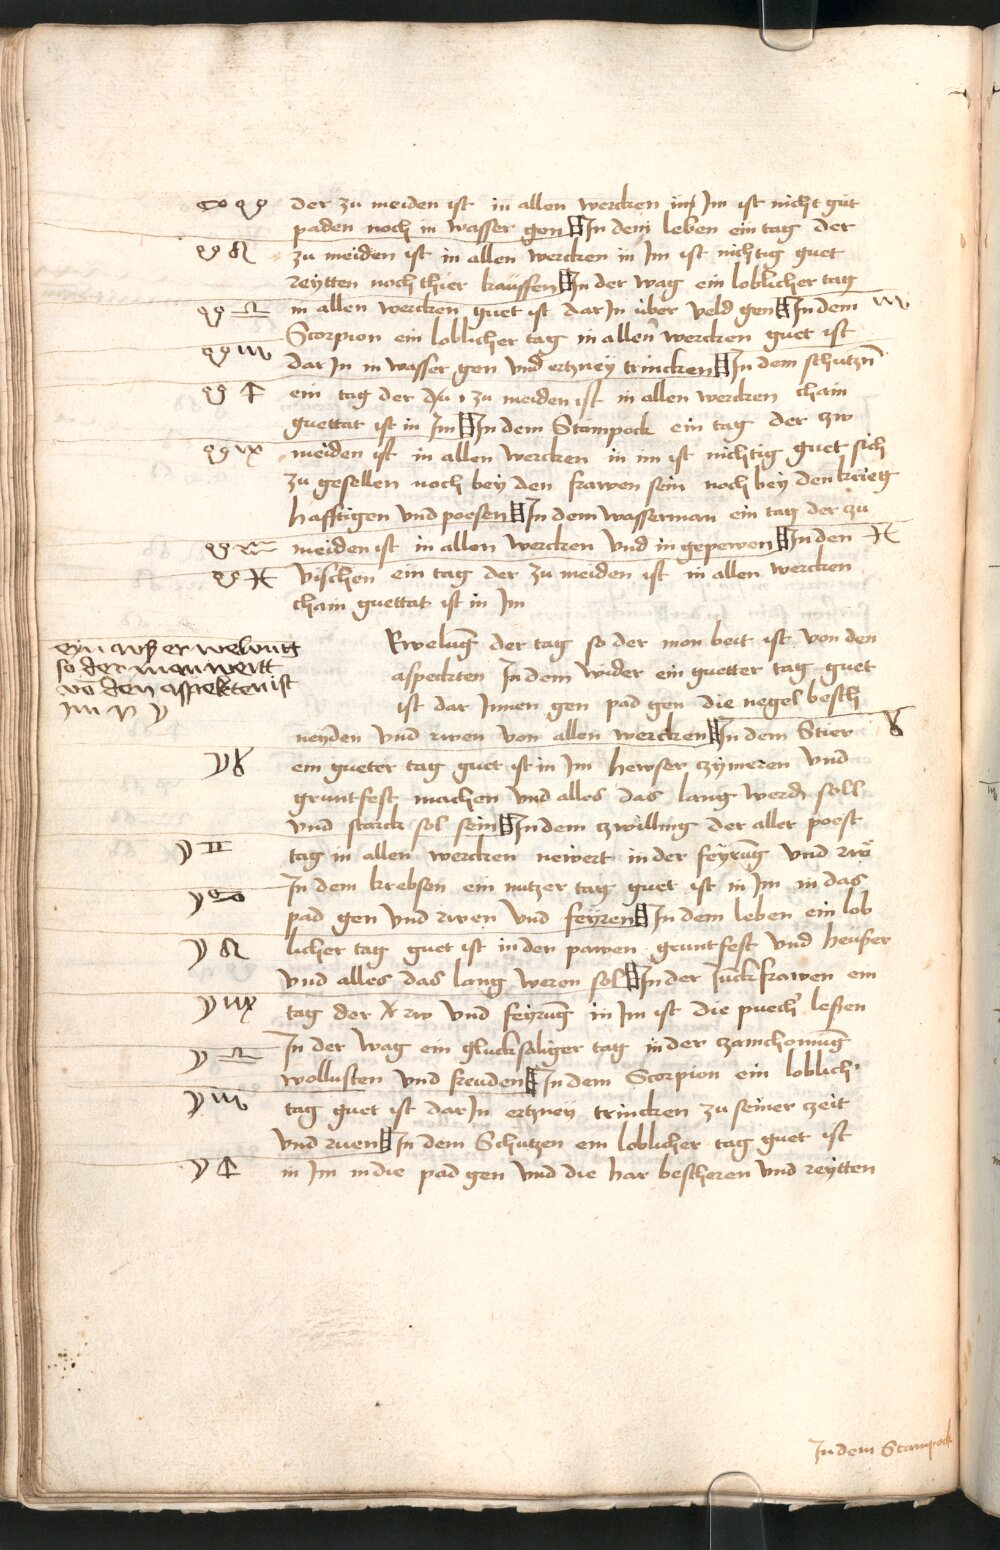 der zu meiden ist in allen wercken in Im ist nicht gut
paden noch in wasser gen In dem leben ein tag der
zu meiden ist in allen wercken in Im ist nichtig guet
reytten noch thier kauffen In der wag ein loblicher tag
in allen wercken guet ist dar In uber veld gen In dem ♏
Scorpion ein loblicher tag in allen wercken guet ist
dar In in wasser gen vnd ertzney trincken In dem schutzn
ein tag der zu meiden ist in allen wercken chain
guettat ist in Im In dem Stampock ein tag der zw
meiden ist in allen wercken in im ist nichtig guet sich
zu gesellen noch bey den frawen sein noch bey den krieg
hafftigen vnd poesen In dem wasserman ein tag der zu
meiden ist in allen wercken vnd in gepewen In den ♓
vischen ein tag der zu meiden ist in allen wercken
chain guettat ist in Im
eyn erwelung
so der mon weitt
vo den aspekten ist
Erwelug der tag so der mon beit ist von den
aspeckten In dem wider ein guetter tag guet
ist dar Innen gen pad gen die negel besch
neyden vnd rwen von allen wercken In dem Stier ♉
☽ ♉ ein gueter tag guet ist in Im hewser zymeren vnd
gruntfest machen vnd alles das lang werd soll
vnd starck sol sein In dem zwilling der aller poest
☽ ♊ tag in allen wercken neivert in der feyrug vnd rwe
☽ ♋ In dem krebsen ein nutzer tag guet ist in Im in das
pad gen vnd rwen vnd feyren In dem leben ein lob
☽ ♌ licher tag guet ist in den pawen gruntfest vnd heuser
vnd alles das lang weren sol In der Iuckfrawen ein
☽ ♍ tag der rw vnd feyrug in Im ist die puech lesen
☽ ♎ In der wag ein glucksaliger tag in der
wollusten vnd freuden In dem Scorpion ein loblich
☽ ♏ tag guet ist dar In ertzney trincken zu seiner czeit
vnd ruen In dem Schutzen ein loblicher tag guet ist
☽ ♐ in Im in die pad gen vnd die har bescheren vnd reytten
In dem Stampock